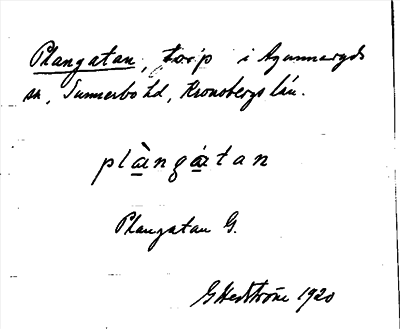 Plangatan, torp i Agunnaryds
sn, Sunnerbo hd, Kronobergs län.
plàngátan
Plangatan G.
G Hedström 1920